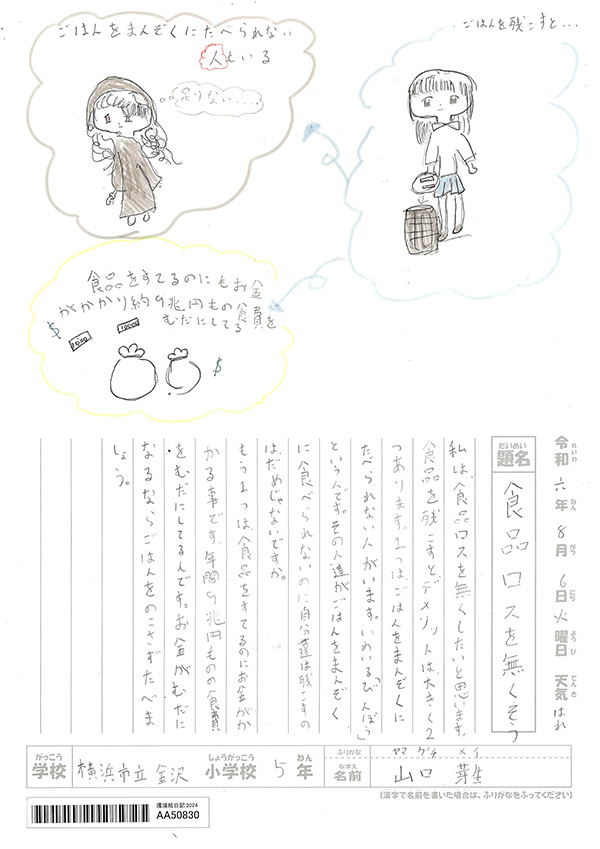 ごはんをまんぞくにたべられない
人もいる
足りない…
ごはんを残こすと…
食品をすてるのにもお金
がかかり約9兆円もの食費を
むだにしてる
$
1000
1000
$
令和六年8月6日火曜日 天気はれ
れいわ ねん がつ にち よう び てんき
だいめい
題名
食品ロスを無くそう
私は、食品ロスを無くしたいと思います。
食品を残こすとデメリットは大きく2
つあります。1つはごはんをまんぞくに
たべられない人がいます。いわいる「びんぼう」
という人です。その人達がごはんをまんぞく
に食べられないのに自分達は残こすの
はだめじゃないですか。
もう1つは、食品をすてるのにお金がか
かる事です。年間9兆円ものの食費
をむだにしてるんです。お金がむだに
なるならごはんをのこさずたべま
しょう。
がっこう
学校
横浜市立 金沢
しょうがっこう
小学校
5
ねん
年
ふりがな
ヤマ グチ メイ
なまえ
名前
山口 芽生
(漢字で名前を書いた場合は、ふりがなをふってください)
環境絵日記2024
AA50830